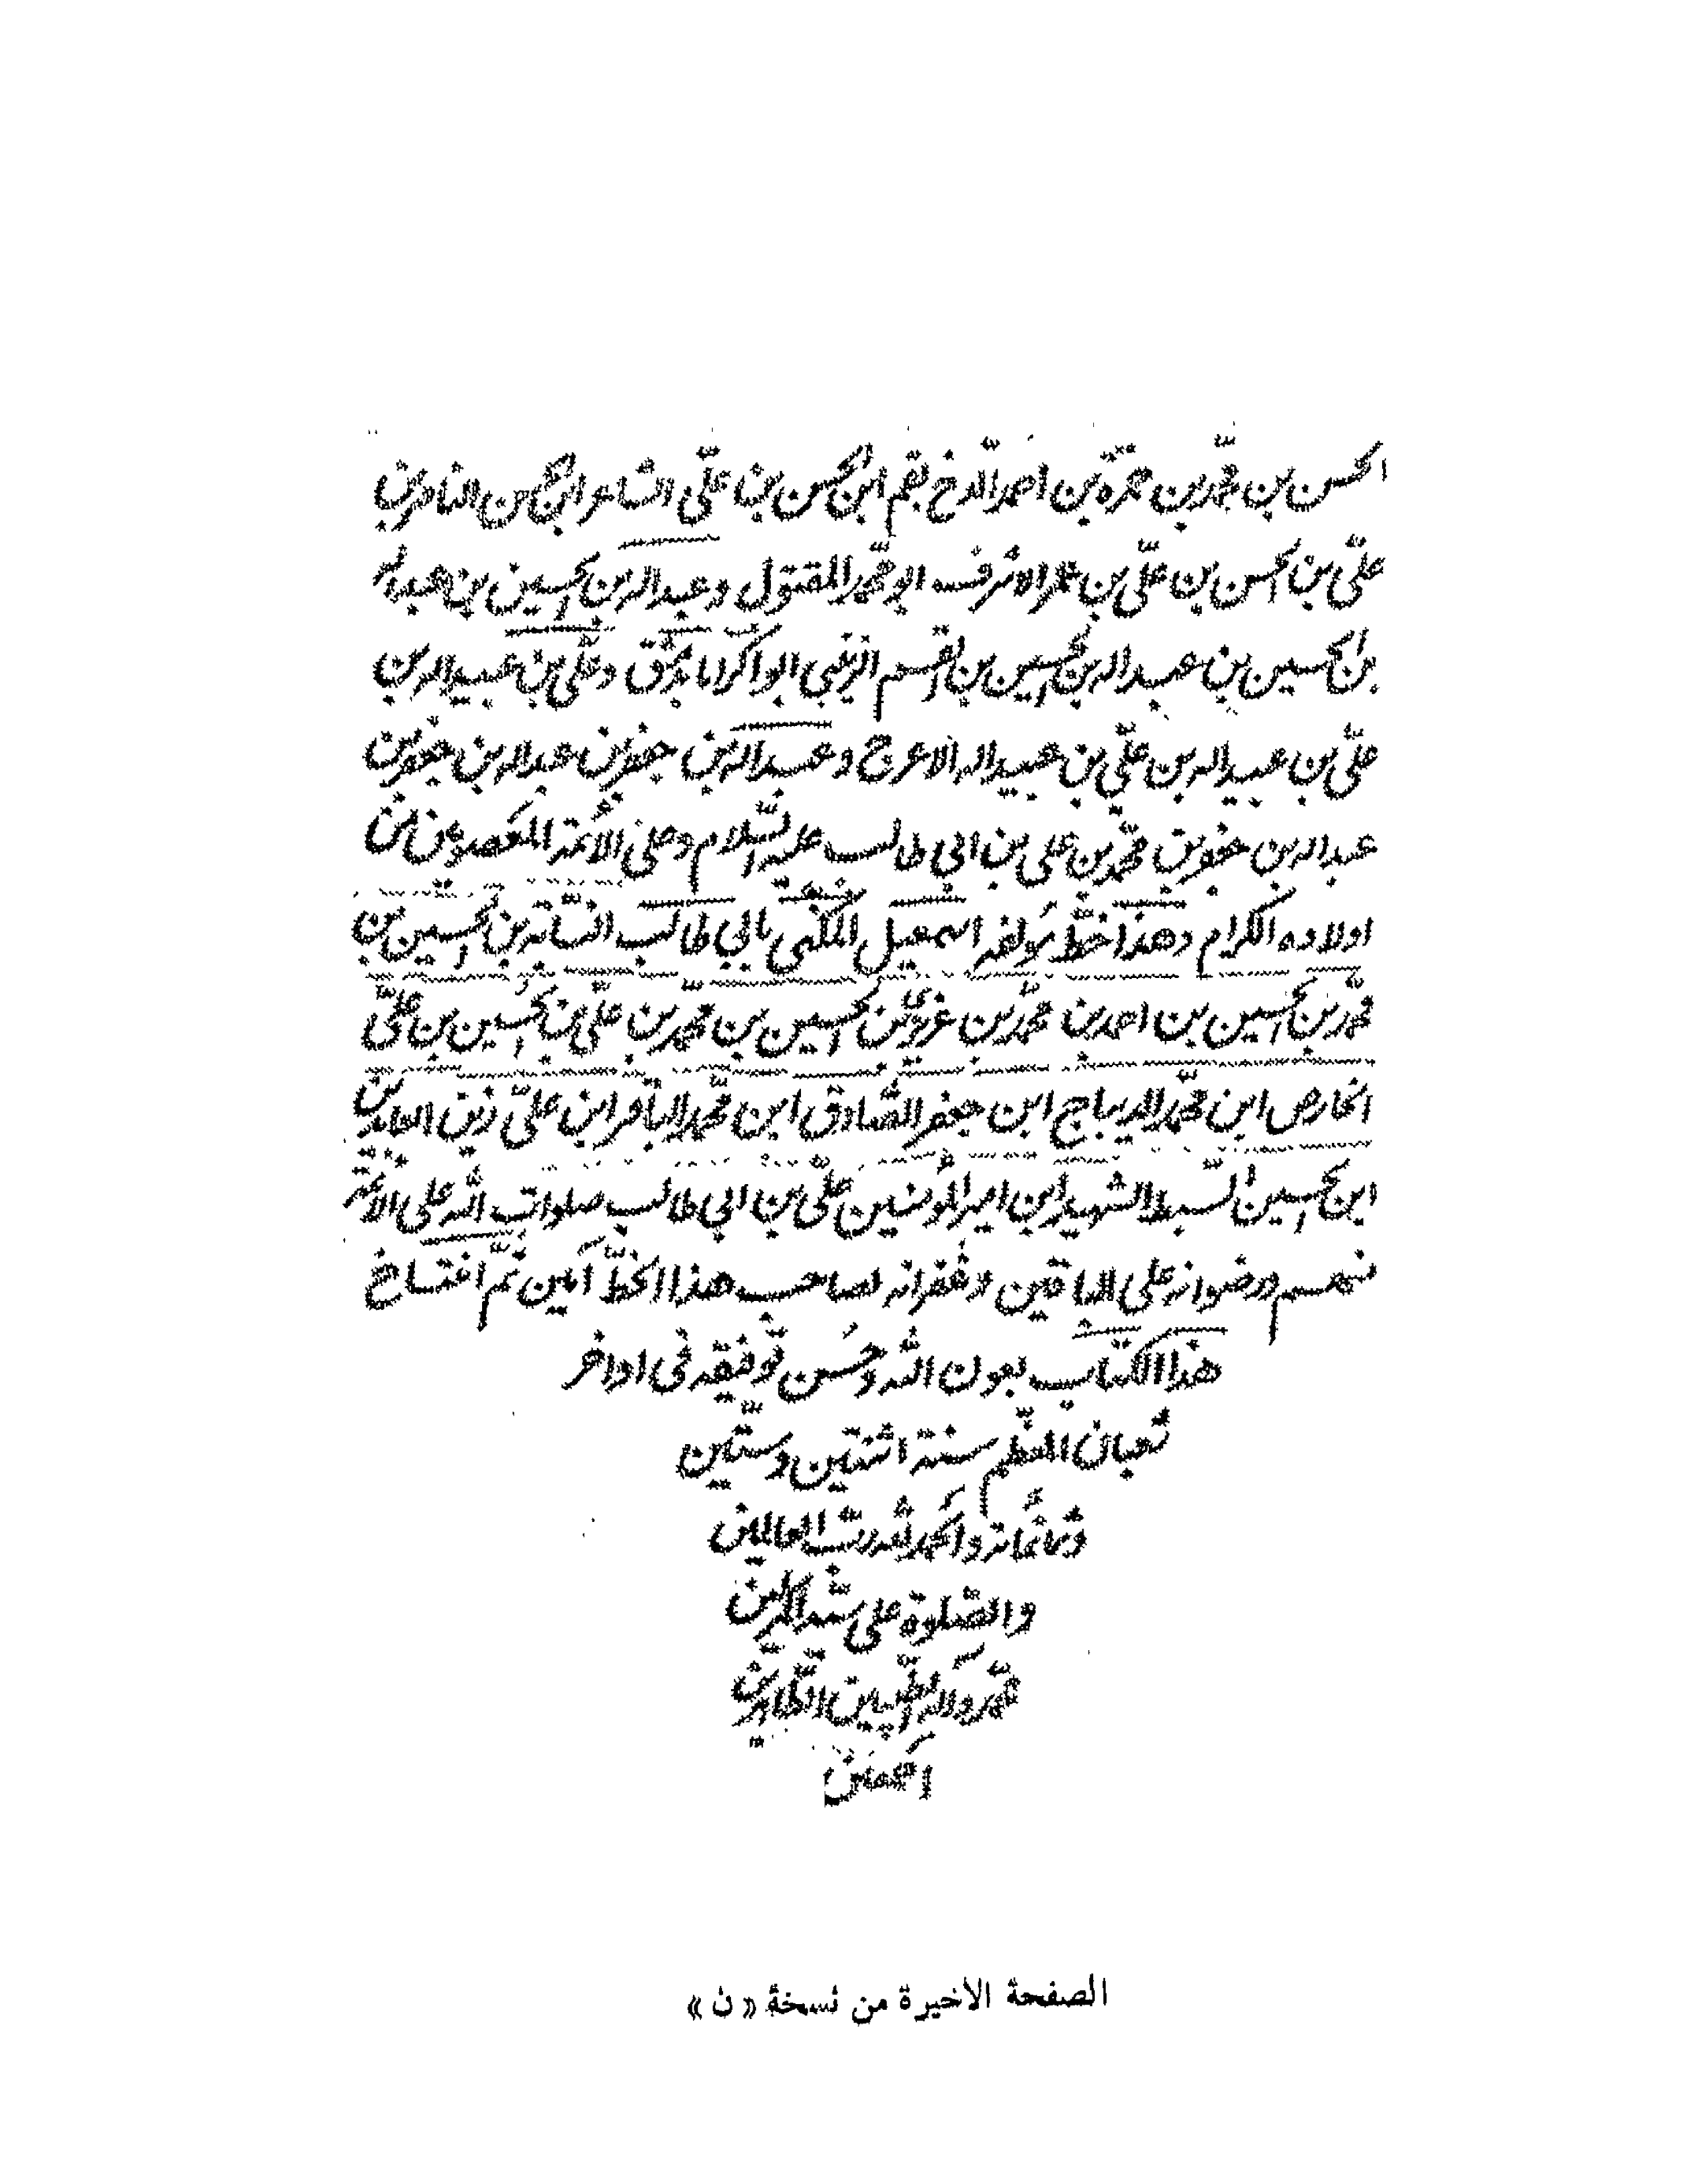 الحسن بن محمد بن حمزة بن احمد الدخ بقم ابن الحسن بن علي الشاعر ابن الحسن الناصر بن
علي بن الحسن بن علي بن عمر الاشرف ابو محمد المقتول وعبد الله بن الحسين بن عبد الله
بن الحسين بن عبد الله بن الحسين بن القسم الزينبي ابو وعلي بن عبيد الله بن
علي بن عبيد الله بن علي بن عبيد الله الاعرج وعبد الله بن جعفر بن عبد الله بن جعفر بن
عبد الله بن جعفر بن محمد بن علي بن ابي طالب عليه السلام وعلى الائمة المعصومين من
اولاده الكرام وهذا خط مؤلفه اسمعيل المكنى بابي طالب النسابه بن الحسين بن
محمد بن الحسين بن احمد بن محمد بن عزيز بن الحسين بن محمد بن علي بن الحسين بن علي
الخارص ابن محمد الديباج ابن جعفر الصادق ابن محمد الباقر ابن علي زين العابدين
ابن الحسين السبط الشهيد ابن امير المؤمنين علي بن ابي طالب صلوات الله على الائمة
منهم ورضوانه على الباقين وغفرانه لصاحب هذا الخط آمين تم انتساخ
هذا الكتاب بعون الله وحسن توفيقه في اواخر
شعبان المعظم سنة اثنتين وستين
وثمانمائة والحمد لله رب العالمين
والصلوة على سيد المرسلين
محمد وآله الطيبين الطاهرين
اجمعين
الصفحة الأخيرة من نسخة « ن »